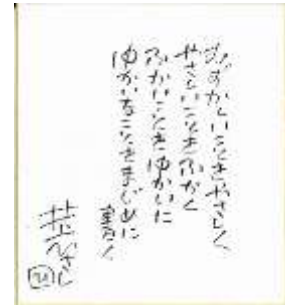 むずかしいことをやさしく
やさしいことをふかく
ふかいことをゆかいに
ゆかいなことをまじめに
書く
井上ひさし